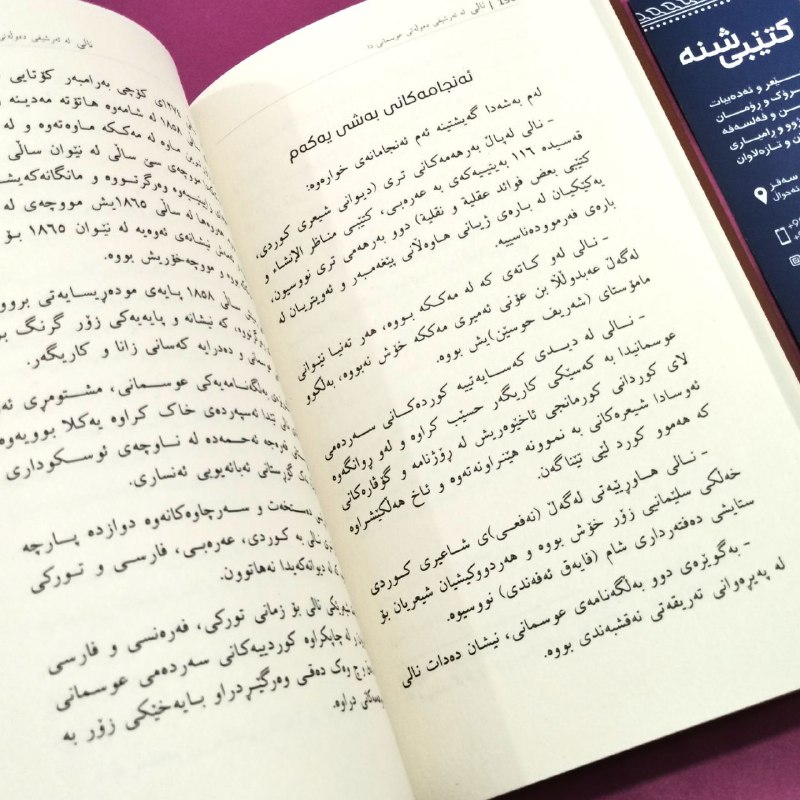 ١٥٠ | نالی لە ئەرشیفی دەوڵەتی عوسمانی دا
ئەنجامەکانی بەشی یەکەم
لەم بەشەدا گەیشتینە ئەم ئەنجامانەی خوارەوە:
- نالی لەپاڵ بەرهەمەکانی تری (دیوانی شیعری کوردی،
قەسیدە ١١٦ بەیتییەکەی بە عەرەبی، کتێبی مناظر الإنشاء و
کتێبی بعض فوائد عقلیة و نقلیة) دوو بەرهەمی تری نووسیون،
یەکێکیان لە بارەی ژیانی هاوەڵانی پێغەمبەر و ئەویتریان لە
بارەی فەرموودەناسییە.
- نالی لەو کاتەی کە لە مەککە بووە، هەر تەنیا نێوانی
لەگەڵ عەبدوڵڵا بن عۆنی ئەمیری مەککە خۆش نەبووە، بەڵکوو
مامۆستای (شەریف حوسێن)یش بووە.
- نالی لە دیدی کەسایەتییە کوردەکانی سەردەمی
عوسمانیدا بە کەسێکی کاریگەر حسێب کراوە و لەو ڕوانگەوە
لای کوردانی کورمانجی ئاخێوەریش لە ڕۆژنامە و گۆڤارەکانی
ئەوسادا شیعرەکانی بە نموونە هێنراونەتەوە و ئاخ هەڵکێشراوە
کە هەموو کورد لێی تێناگەن.
- نالی هاوڕێیەتی لەگەڵ (نەفعی)ی شاعیری کوردی
خەڵکی سلێمانیی زۆر خۆش بووە و هەردووکیشیان شیعریان بۆ
ستایشی دەفتەرداری شام (فایەق ئەفەندی) نووسیوە.
- بەگوێرەی دوو بەڵگەنامەی عوسمانی، نیشان دەدات نالی
لە پەیڕەوانی تەریقەتی نەقشبەندی بووە.
نالی لە ئەرشیفی دەوڵەتی عوسمانی
کۆچی بەرامبەر کۆتایی
١٨٥٨ لە شامەوە هاتۆتە مەدینە و
ماوە لە مەککە ماوەتەوە و لە
مووچەی سێ ساڵی لە نێوان ساڵی
وەرگرتووە و مانگانەکەیشی
لە ساڵی ١٨٦٥یش مووچەی لە
نیشانەی ئەوەیە لە نێوان ١٨٦٥ بۆ
بووە و مووچەخۆریش بووە.
ساڵی ١٨٥٨ پایەی مودەڕیسایەتی برووسە
کە نیشانە و پایەیەکی زۆر گرنگ بووە
و دەدرایە کەسانی زانا و کاریگەر.
بەڵگەنامەیەکی عوسمانی، مشتومڕی ئەو
تێدا ئەسپەردەی خاک کراوە یەکلا بوویەوە
قەرەجە ئەحمەدە لە ناوچەی ئوسکوداری
گۆڕستانی ئەبائەیوبی ئەنساری.
دەستخەت و سەرچاوەکانەوە دوازدە پارچە
نالی بە کوردی، عەرەبی، فارسی و تورکی
لە دیوانەکەیدا نەهاتوون.
شیعرێکی نالی بۆ زمانی تورکی، فەرەنسی و فارسی
لە چاپکراوە کوردییەکانی سەردەمی عوسمانی
وەک دەقی وەرگێڕدراو بایەخێکی زۆر بە
دراوە.
کتێبی شنە
و ئەدەبیات
و ڕۆمان
و فەلسەفە
و ڕامیاری
و تازەلاوان
سەقز